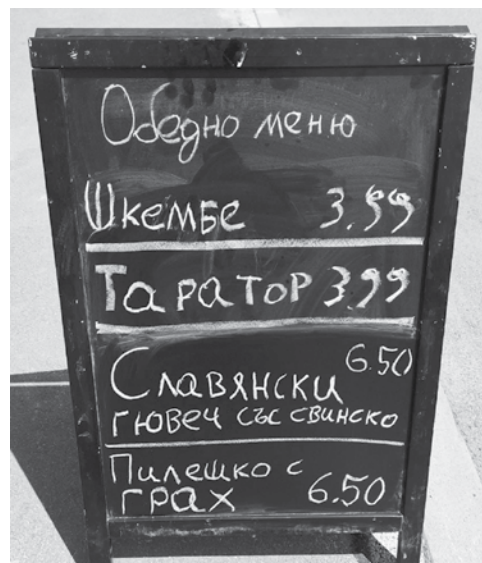 Обедно меню
Шкембе 3.99
Таратор 3.99
6.50
Славянски
гювеч със свинско
Пилешко с
грах 6.50